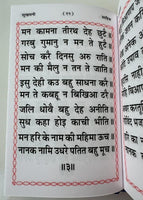 सुखमनी (११) साहिब
मन कामना तीरथ देह छुटै ॥
गरबु गुमानु न मन ते हुटै ॥
सोच करै दिनसु अरु राति ॥
मन की मैलु न तन ते जाति ॥
इसु देही कउ बहु साधना करै ॥
मन ते कबहू न बिखिआ टरै ॥
जलि धोवै बहु देह अनीति ॥
सुध कहा होइ काची भीति ॥
मन हरि के नाम की महिमा ऊच ॥
नानक नामि उधरे पतित बहु मूच ॥
॥३॥